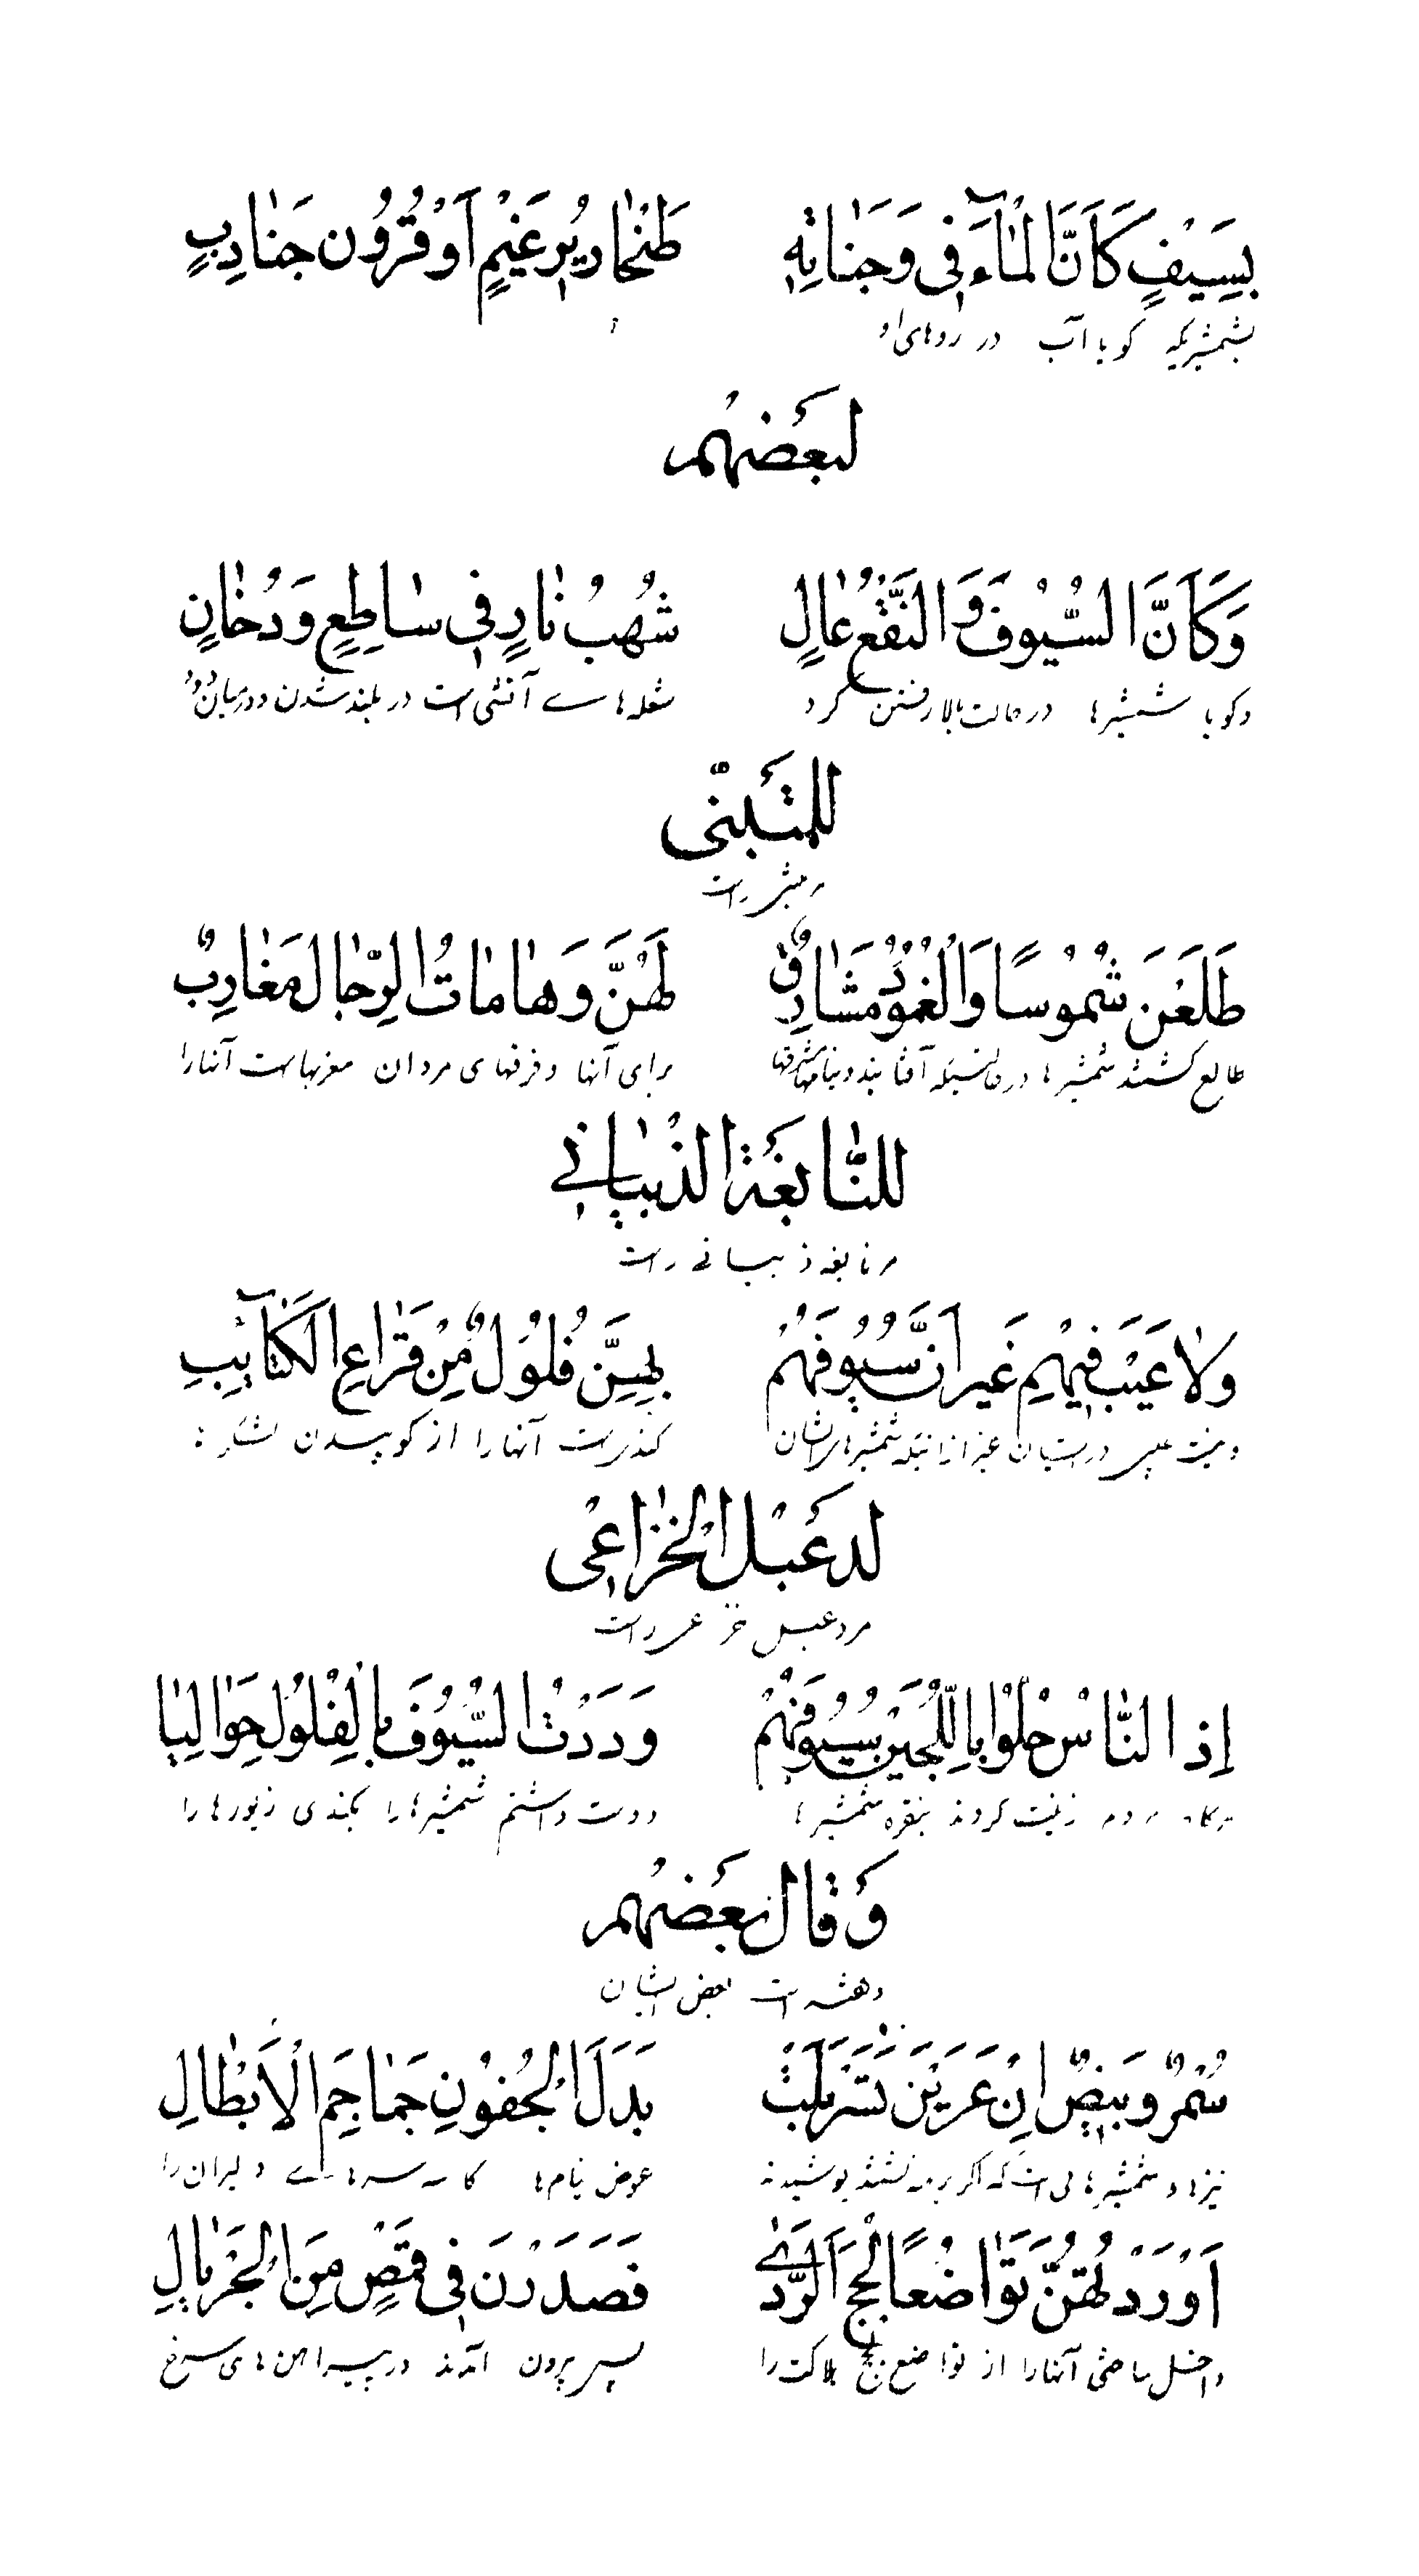 بِسَيْفٍ كَاَنَّ الْمَآءَ فِى وَجَنَاتِهِ طَحَارِيرُ غَيْمٍ اَوْ قُرُونُ جَنَادِبٍ
بشمشیریکه کویا آب در روهای او
لِبَعْضِهُم
وَكَاَنَّ السُّيُوْفَ وَ النَّقْعُ عَالٍ شُهُبُ نَارٍ فِى سَاطِعٍ وَدُخَانٍ
وکویا شمشیرها در حالت بالا رفتن کرد شعله های آتشی است در بلند شدن ودر میان دود
لِلْمُتَنَبِّى
طَلَعْنَ شُمُوْسًا وَالْغُمُوْدُ مَشَارِقٌ لَهُنَّ وَهَامَاتُ الرِّجَالِ مَغَارِبٌ
طالع کشتند شمشیرها در حالتیکه آفتابند ونیامها مشرقها برای آنها وفرقهای مردان مغربهاست آنهارا
لِلنَّابِغَةِ الذُّبْيَانِى
مر نابغه ذبیانی راست
وَلَا عَيْبَ فِيْهِمْ غَيْرَ اَنَّ سُيُوْفَهُمْ بِهِنَّ فُلُوْلٌ مِنْ قِرَاعِ الْكَتَآئِبِ
ونیست عیبی در ایشان غیر از اینکه شمشیرهای ایشان کند است آنهارا از کوبیدن لشکر
لِدِعْبِلِ الْخُزَاعِى
مر دعبل خزاعی راست
اِذَا النَّاسُ حَلَّوْا بِاللُّجَيْنِ سُيُوْفَهُمْ وَدَدْتُ السُّيُوْفَ بِالْفُلُوْلِ حَوَالِيَا
مردم زینت کردند بنقره شمشیرها دوست داشتم شمشیرهارا بکندی زیورهارا
وَقَالَ بَعْضُهُم
وکفته است بعض ایشان
سُمْرٌ وَبِيْضٌ اِنْ عَرَيْنَ تَسَرْبَلَتْ بَدَلَ الْجُفُوْنِ جَمَاجِمَ الْاَبْطَالِ
نیزها وشمشیرهائی است که اکر برهنه شدند پوشیدند عوض نیام ها کاسه سرهای دلیران را
اَوْرَدْتُهُنَّ تَوَاضُعًا لُجَجَ الرَّدَى فَصَدَرْنَ فِى قُمَصٍ مِنَ الْجِرْيَالِ
داخل ساختی آنهارا از تواضع لجج هلاکت را پس بیرون آمدند در پیراهن های سرخ